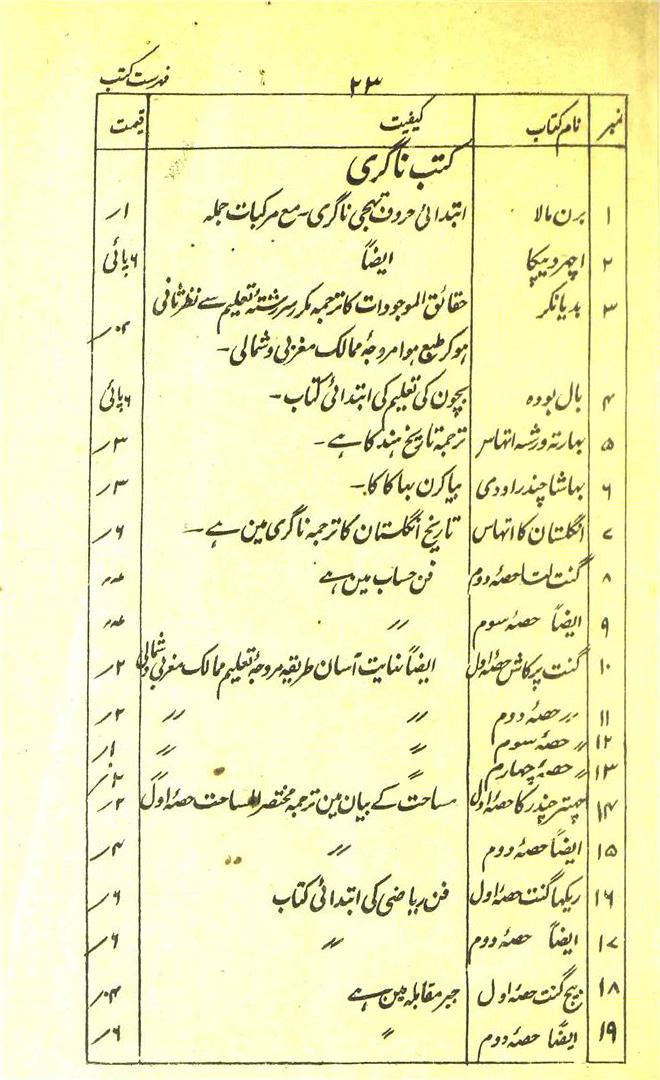 ۲۳
فہرست کتب
نمبر نام کتاب کیفیت قیمت
کتب ناگری
۱ برن مالا ابتدائی حروف تہجی ناگری۔ مع مرکبات جملہ ۱ر
۲ اچھر دیپکا ایضاً ۶ پائی
۳ بدیانکر حقائق الموجودات کا ترجمہ مکرر سررشتۂ تعلیم سے نظر ثانی
ہوکر طبع ہوا مروجۂ ممالک مغربی و شمالی۔
۴ بال بودہ بچون کی تعلیم کی ابتدائی کتاب۔ ۶ پائی
۵ بہارتہ ورشہ اتہاس ترجمۂ تاریخ ہند کا ہے۔ ۳ر
۶ بہاشا چندر اودی بیاکرن بہاکا کا۔ ۳ر
۷ انگلستان کا اتہاس تاریخ انگلستان کا ترجمہ ناگری مین ہے۔ ۶ر
۸ گنت لتا حصۂ دوم فن حساب مین ہے
۹ ایضاً حصۂ سوم 〃
۱۰ گنت پرکاش حصۂ اول ایضاً نہایت آسان طریقہ مروجۂ تعلیم ممالک مغربی و شمالی ۲ر
۱۱ 〃 حصۂ دوم 〃 〃 ۲ر
۱۲ 〃 حصۂ سوم 〃 〃 ۱ر
۱۳ 〃 حصۂ چہارم 〃
۱۴ چھیتر چندرکا حصۂ اول مساحت کے بیان مین ترجمہ مختصر المساحت حصۂ اول کا ۲ر
۱۵ ایضاً حصۂ دوم 〃 ۴ر
۱۶ ریکھا گنت حصۂ اول فن ریاضی کی ابتدائی کتاب ۶ر
۱۷ ایضاً حصۂ دوم 〃 ۶ر
۱۸ بیج گنت حصۂ اول جبر مقابلہ مین ہے
۱۹ ایضاً حصۂ دوم 〃 ۶ر